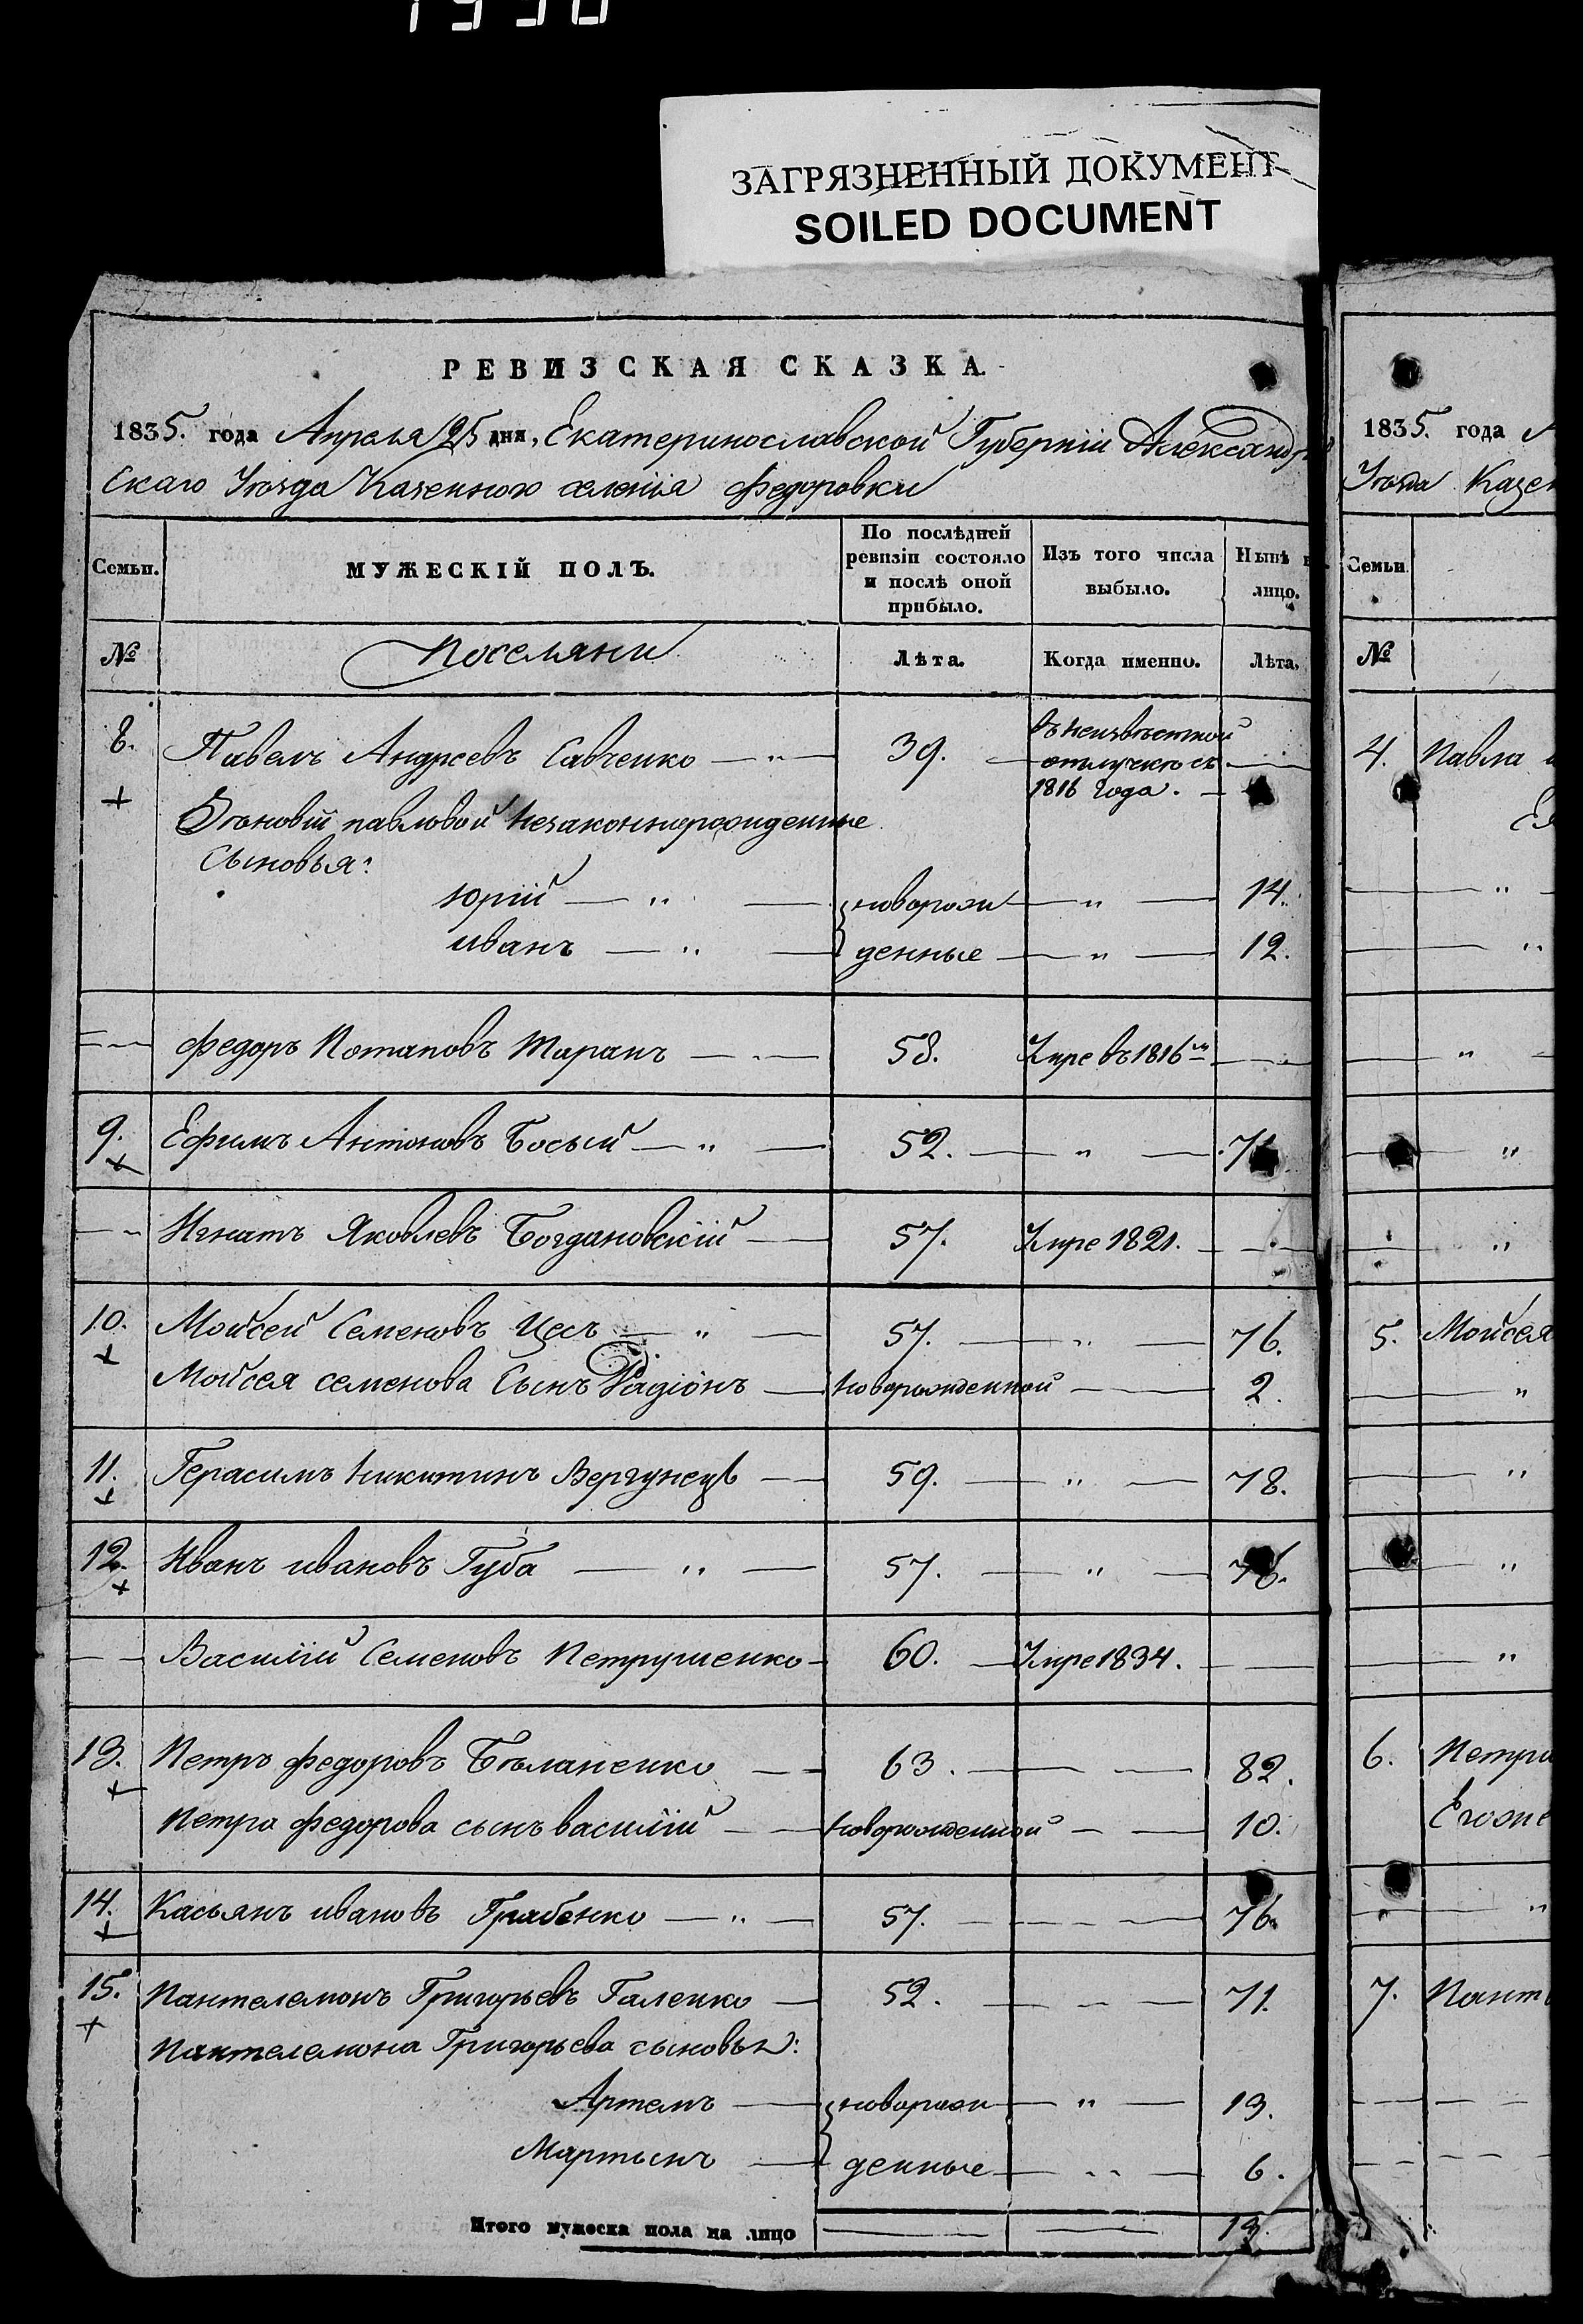 1990
ЗАГРЯЗНЕННЫЙ ДОКУМЕНТ
SOILED DOCUMENT
РЕВИЗСКАЯ СКАЗКА.
1835. года Апреля 25 дня, Екатеринославской Губерніи Александров
скаго Уѣзда Казенного селенія Федоровки
Семьи.
МУЖЕСКІЙ ПОЛЪ.
По послѣдней ревизіи состояло и послѣ оной прибыло.
Изъ того числа выбыло.
Нынѣ в лицо.
№
Поселяни
Лѣта.
Когда именно.
Лѣта,
8. Павелъ Андреевъ Савченко — " — 39. — въ неизвѣстной
отлучкѣ съ
1816 года. —
павловой незаконнорожденные
Сыновья:
Юрій — " — новорож — " — 14.
иванъ — " — денные — " — 12.
федоръ Потаповъ Таранъ — 58. Умре въ 1816м
9. Ефимъ Антоновъ Босый — " — 52. — " —
Игнатъ Яковлевъ Богдановскій — 57. Умре 1821.
10. Мойсей Семеновъ Цесь — " — 57. — " — 76.
Мойсея семенова Сынъ Радіонъ — новорожденной — 2.
11. Герасимъ никитинъ Вергунецъ — 59. — " — 78.
12. Иванъ ивановъ Губа — " — 57. — " — 76.
Василій Семеновъ Петрушенко — 60. — Умре 1834.
13. Петръ федоровъ Бѣланенко — 63. — 82.
Петра федорова сынъ василій — новорожденной — 10.
14. Касьянъ ивановъ Грабенко — " — 57. — 76.
15. Пантелемонъ Григорьевъ Галенко — 52. — 71.
Пантелемона Григорьева сыновья:
Артемъ — новорож — " — 13.
Мартынъ — денные — " — 6.
Итого мужеска пола на лицо — — 13.
1835. года А
Уѣзда Казен
Семьи.
№
4. Павла
5. Мойсея
6. Петра
7. Пант